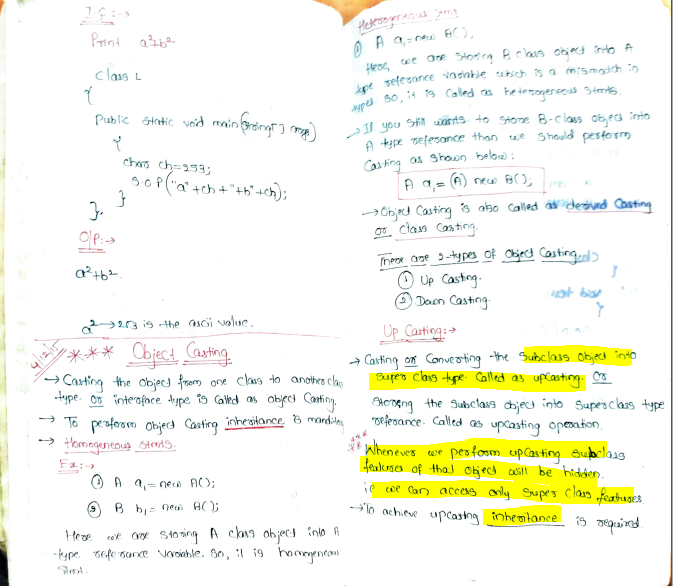 I.Q :→
Print a²+b²
Class L
{
Public static void main(String[] args)
{
char ch=253;
S.O.P("a"+ch+"+b"+ch);
}
}.
O/P:→
a²+b².
a² → 253 is the ascii value.
4/12/15
*** Object Casting
→ Casting the object from one class to another class
type. or interface type is called as object Casting.
→ To perform object Casting inheritance is mandatory
→ Homogeneous stmts.
Ex:→
① A a₁ = new A();
② B b₁ = new B();
Here we are storing A class object into A
type referance variable. So, it is homogeneous
Stmt.
Heterogeneous Stmt
① A a₁ = new B();
Here, we are storing B class object into A
type referance variable which is a mismatch in
types so, it is called as heterogeneous stmts.
→ If you still wants to store B-class object into
A type referance than we should perform
Casting as shown below:
A a₁ = (A) new B();
→ Object Casting is also called as derived Casting
or class Casting.
There are 2-types of Object Casting.
① Up Casting.
② Down Casting.
Up Casting:→
→ Casting or Converting the subclass object into
super class type. Called as upcasting. Or
storing the subclass object into superclass type
referance. Called as upcasting operation.
*** Whenever we perform upcasting subclass
features of that object will be hidden.
ie we can access only super class features
→ To achieve upcasting inheritance is required.